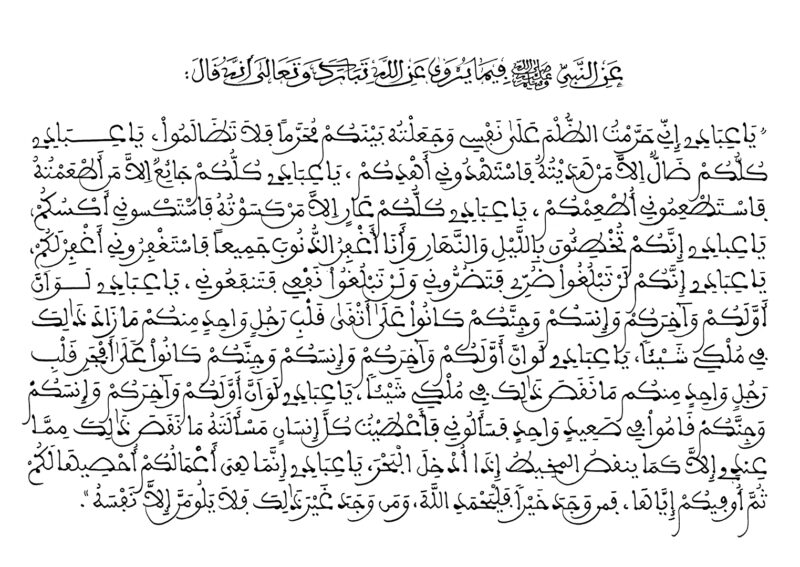 عن النبي ﷺ فيما يروى عن الله تبارك وتعالى أنه قال :
"يا عبادي إني حرمت الظلم على نفسي وجعلته بينكم محرماً فلا تظالموا، يا عبادي
كلكم ضال إلا من هديته فاستهدوني أهدكم، يا عبادي كلكم جائع إلا من أطعمته
فاستطعموني أطعمكم، يا عبادي كلكم عار إلا من كسوته فاستكسوني أكسكم،
يا عبادي إنكم تخطئون بالليل والنهار وأنا أغفر الذنوب جميعاً فاستغفروني أغفر لكم،
يا عبادي إنكم لن تبلغوا ضري فتضروني ولن تبلغوا نفعي فتنفعوني، يا عبادي لو أن
أولكم وآخركم وإنسكم وجنكم كانوا على أتقى قلب رجل واحد منكم ما زاد ذلك
في ملكي شيئاً، يا عبادي لو أن أولكم وآخركم وإنسكم وجنكم كانوا على أفجر قلب
رجل واحد منكم ما نقص ذلك في ملكي شيئاً، يا عبادي لو أن أولكم وآخركم وإنسكم
وجنكم قاموا في صعيد واحد فسألوني فأعطيت كل إنسان مسألته ما نقص ذلك مما
عندي إلا كما ينقص المخيط إذا أدخل البحر، يا عبادي إنما هي أعمالكم أحصيها لكم
ثم أوفيكم إياها، فمن وجد خيراً فليحمد الله، ومن وجد غير ذلك فلا يلومن إلا نفسه".